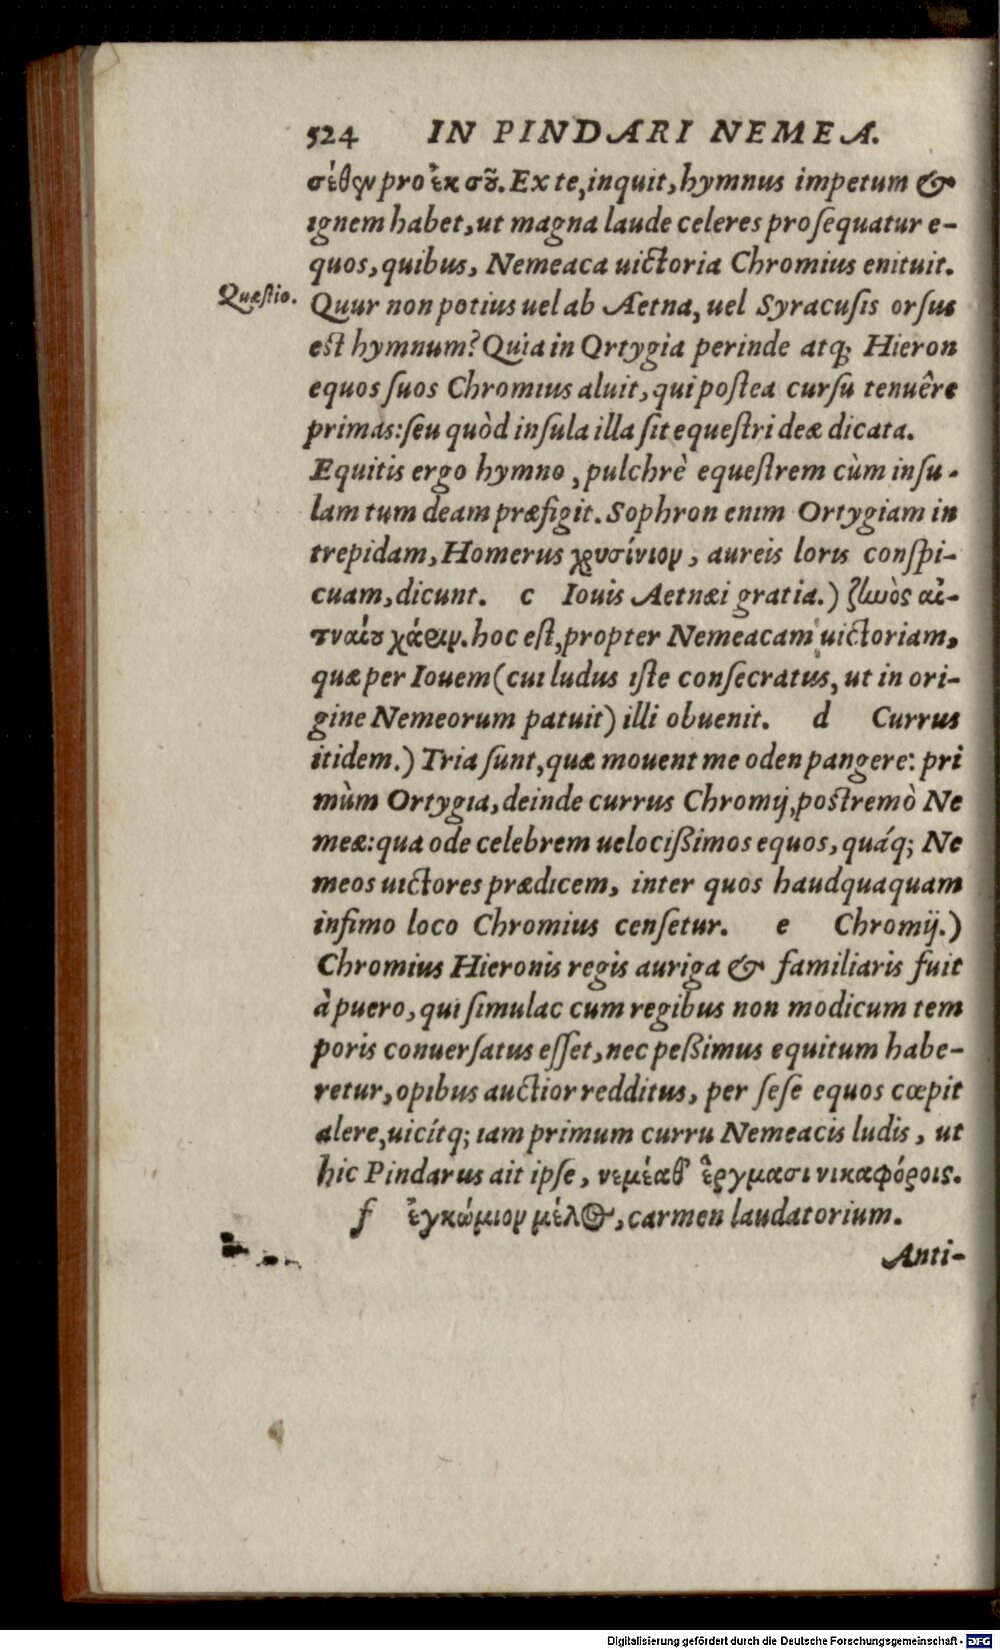 524 IN PINDARI NEMEA.
σέθεν pro ἐκ σȣ̃. Ex te, inquit, hymnus impetum &
ignem habet, ut magna laude celeres proſequatur e-
quos, quibus, Nemeaca uictoria Chromius enituit.
Quæſtio.
Quur non potius uel ab Aetna, uel Syracuſis orſus
eſt hymnum? Quia in Ortygia perinde atq; Hieron
equos ſuos Chromius aluit, qui poſtea curſu tenuêre
primas: ſeu quòd inſula illa ſit equeſtri deæ dicata.
Equitis ergo hymno, pulchrè equeſtrem cùm inſu-
lam tum deam præfigit. Sophron enim Ortygiam in
trepidam, Homerus χρυσίνιον, aureis loris conſpi-
cuam, dicunt. c Iouis Aetnæi gratia.) ζluὸς αἰ-
τναίȣ χάριν. hoc eſt, propter Nemeacam uictoriam,
quæ per Iouem (cui ludus iſte conſecratus, ut in ori-
gine Nemeorum patuit) illi obuenit. d Currus
itidem.) Tria ſunt, quæ mouent me oden pangere: pri
mùm Ortygia, deinde currus Chromij, poſtremò Ne
meæ: qua ode celebrem uelocißimos equos, quáq; Ne
meos uictores prædicem, inter quos haudquaquam
infimo loco Chromius cenſetur. e Chromij.)
Chromius Hieronis regis auriga & familiaris fuit
à puero, qui ſimulac cum regibus non modicum tem
poris conuerſatus eſſet, nec peßimus equitum habe-
retur, opibus auctior redditus, per ſeſe equos cœpit
alere, uicítq; iam primum curru Nemeacis ludis, ut
hic Pindarus ait ipſe, νεμέαθ' ἔργμασι νικαφόροις.
f ἐγκώμιον μέλος, carmen laudatorium.
Anti-
Digitalisierung gefördert durch die Deutsche Forschungsgemeinschaft - DFG